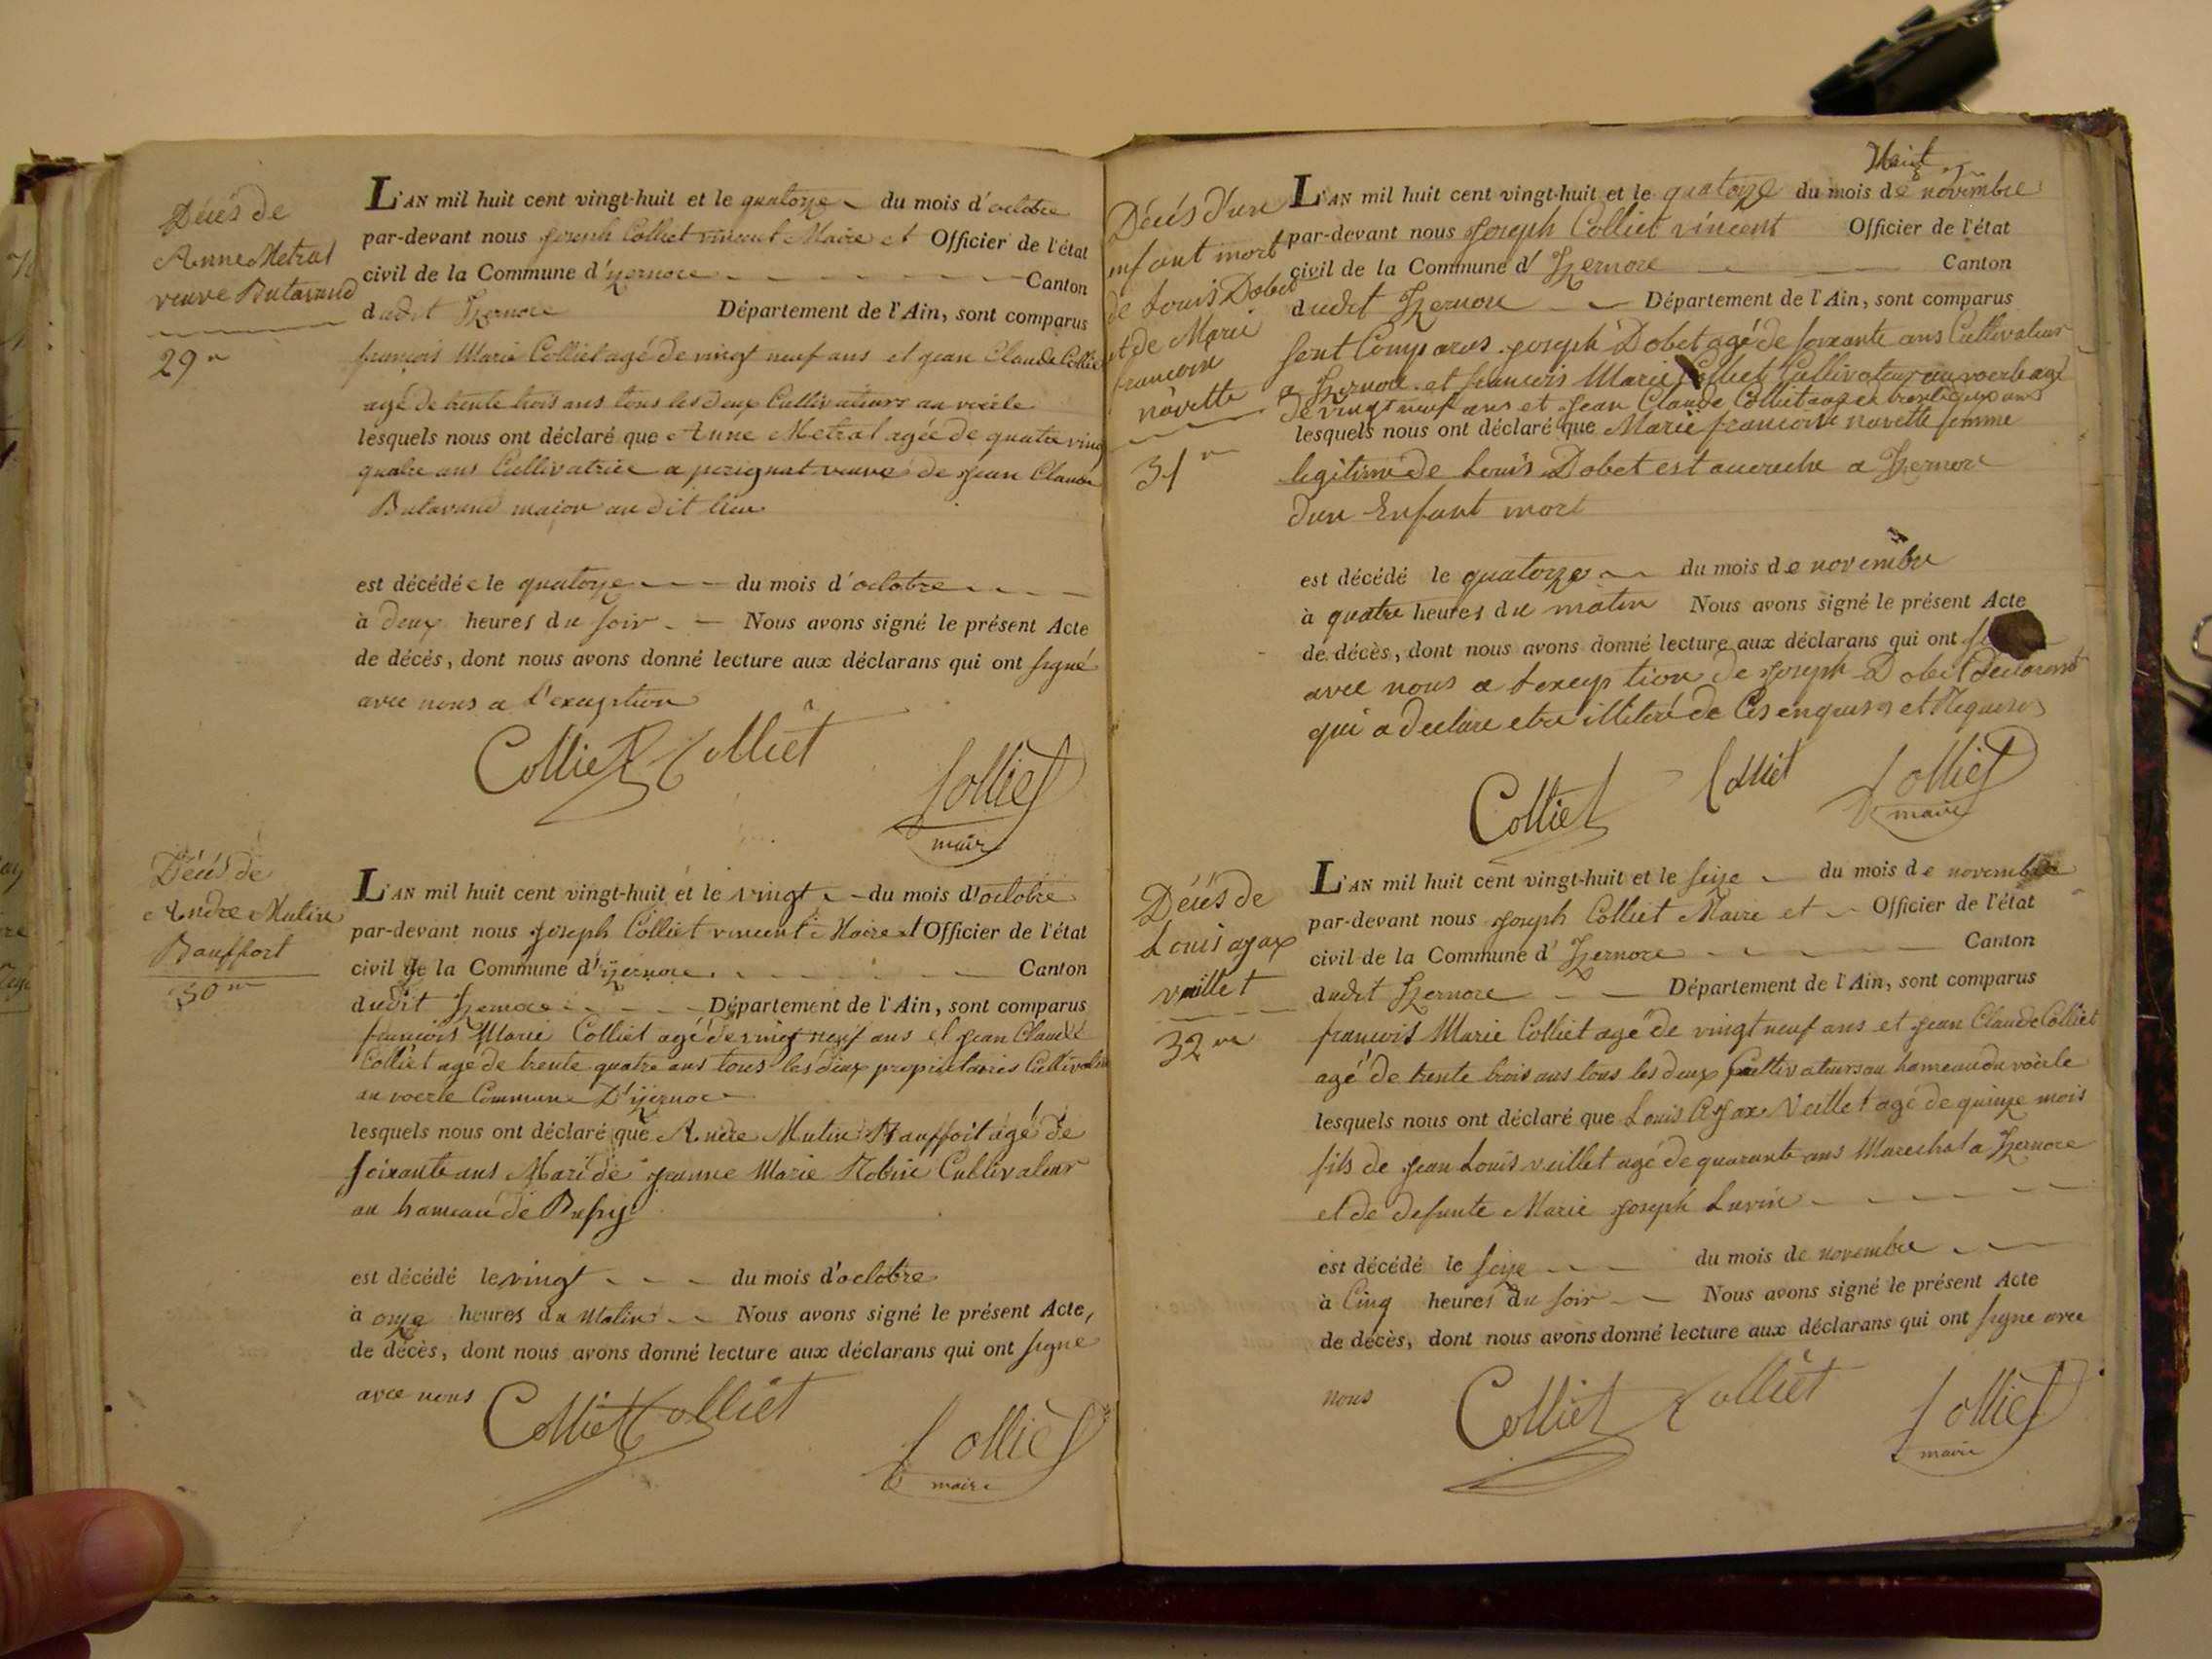 Décés de
Anne Metral
veuve Butavand
29e
L'AN mil huit cent vingt-huit et le quatorze du mois d'octobre
par-devant nous Joseph Colliet vincent Maire et Officier de l'état
civil de la Commune d'yzernore Canton
dudit Izernore Département de l'Ain, sont comparus
françois Marie Colliet agé de vingt neuf ans et jean Claude Colliet
agé de trente trois ans tous les deux Cultivateurs au voerle
lesquels nous ont déclaré que Anne Metral agée de quatre vingt
quatre ans Cultivatrice a perignat veuve de Jean Claude
Butavand major au dit lieu
est décédée le quatorze du mois d'octobre
à deux heures du soir Nous avons signé le présent Acte
de décès, dont nous avons donné lecture aux déclarans qui ont signé
avec nous a l'exception
Colliet Colliet
Colliet
maire
Décés de
Andre Mutin
Bauffort
30me
L'AN mil huit cent vingt-huit et le vingt du mois d'octobre
par-devant nous Joseph Colliet vincent Maire et Officier de l'état
civil de la Commune d'yzernore Canton
dudit Izernore Département de l'Ain, sont comparus
françois Marie Colliet agé de vingt neuf ans et Jean Claude
Colliet agé de trente quatre ans tous les deux proprietaires Cultivateurs
au voerle Commune D'yzernore
lesquels nous ont déclaré que Andre Mutin Bauffort agé de
soixante ans Mari de jeanne Marie Robin Cultivateur
au hameau de
est décédé le vingt du mois d'octobre
à onze heures du Matin Nous avons signé le présent Acte,
de décès, dont nous avons donné lecture aux déclarans qui ont signe
avec nous
Colliet Colliet
Colliet
maire
huit
Décés d'un
enfant mort
de Louis Dobet
et de Marie
francoise
navette
31e
L'AN mil huit cent vingt-huit et le quatorze du mois de novembre
par-devant nous Joseph Colliet vincent Officier de l'état
civil de la Commune d'Izernore Canton
dudit Izernore Département de l'Ain, sont comparus
sont Comparus joseph Dobet agé de soixante ans Cultivateur
a Izernore et francois Marie Colliet Cultivateur au voerle agé
de vingt neuf ans et Jean Claude Colliet agé de trente ans
lesquels nous ont déclaré que Marie francoise navette femme
legitime de Louis Dobet est accouche a Izernore
dun Enfant mort
est décédé le quatorze du mois de novembre
à quatre heures du matin Nous avons signé le présent Acte
de décès, dont nous avons donné lecture aux déclarans qui ont
avec nous a lexception de Joseph Dobet declarant
qui a declare etre illiteré de Ces enquis et Requis
Colliet Colliet Colliet
maire
Décés de
Louis ajax
vuillet
32me
L'AN mil huit cent vingt-huit et le seize du mois de novembre
par-devant nous Joseph Colliet Maire et Officier de l'état
civil de la Commune d'Izernore Canton
dudit Izernore Département de l'Ain, sont comparus
francois Marie Colliet agé de vingt neuf ans et Jean Claude Colliet
agé de trente trois ans tous les deux Cultivateurs au hameau du voerle
lesquels nous ont déclaré que Louis Ajax Vuillet agé de quinze mois
fils de Jean Louis vuillet agé de quarante ans Marechal a Izernore
et de defunte Marie Joseph Lavin
est décédé le seize du mois de novembre
à Cinq heures du soir Nous avons signé le présent Acte
de décès, dont nous avons donné lecture aux déclarans qui ont signe avec
nous
Colliet Colliet Colliet
maire